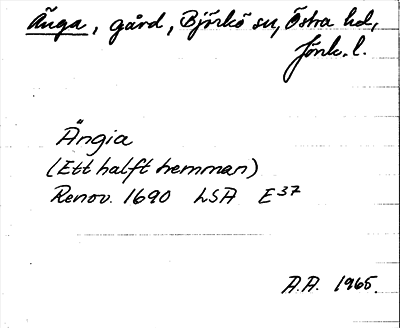 Änga, gård, Björkö sn, Östra hd,
Jönk. l.
Ängia
(Ett halft hemman)
Renov. 1690 LSA E 37
A.A. 1965.